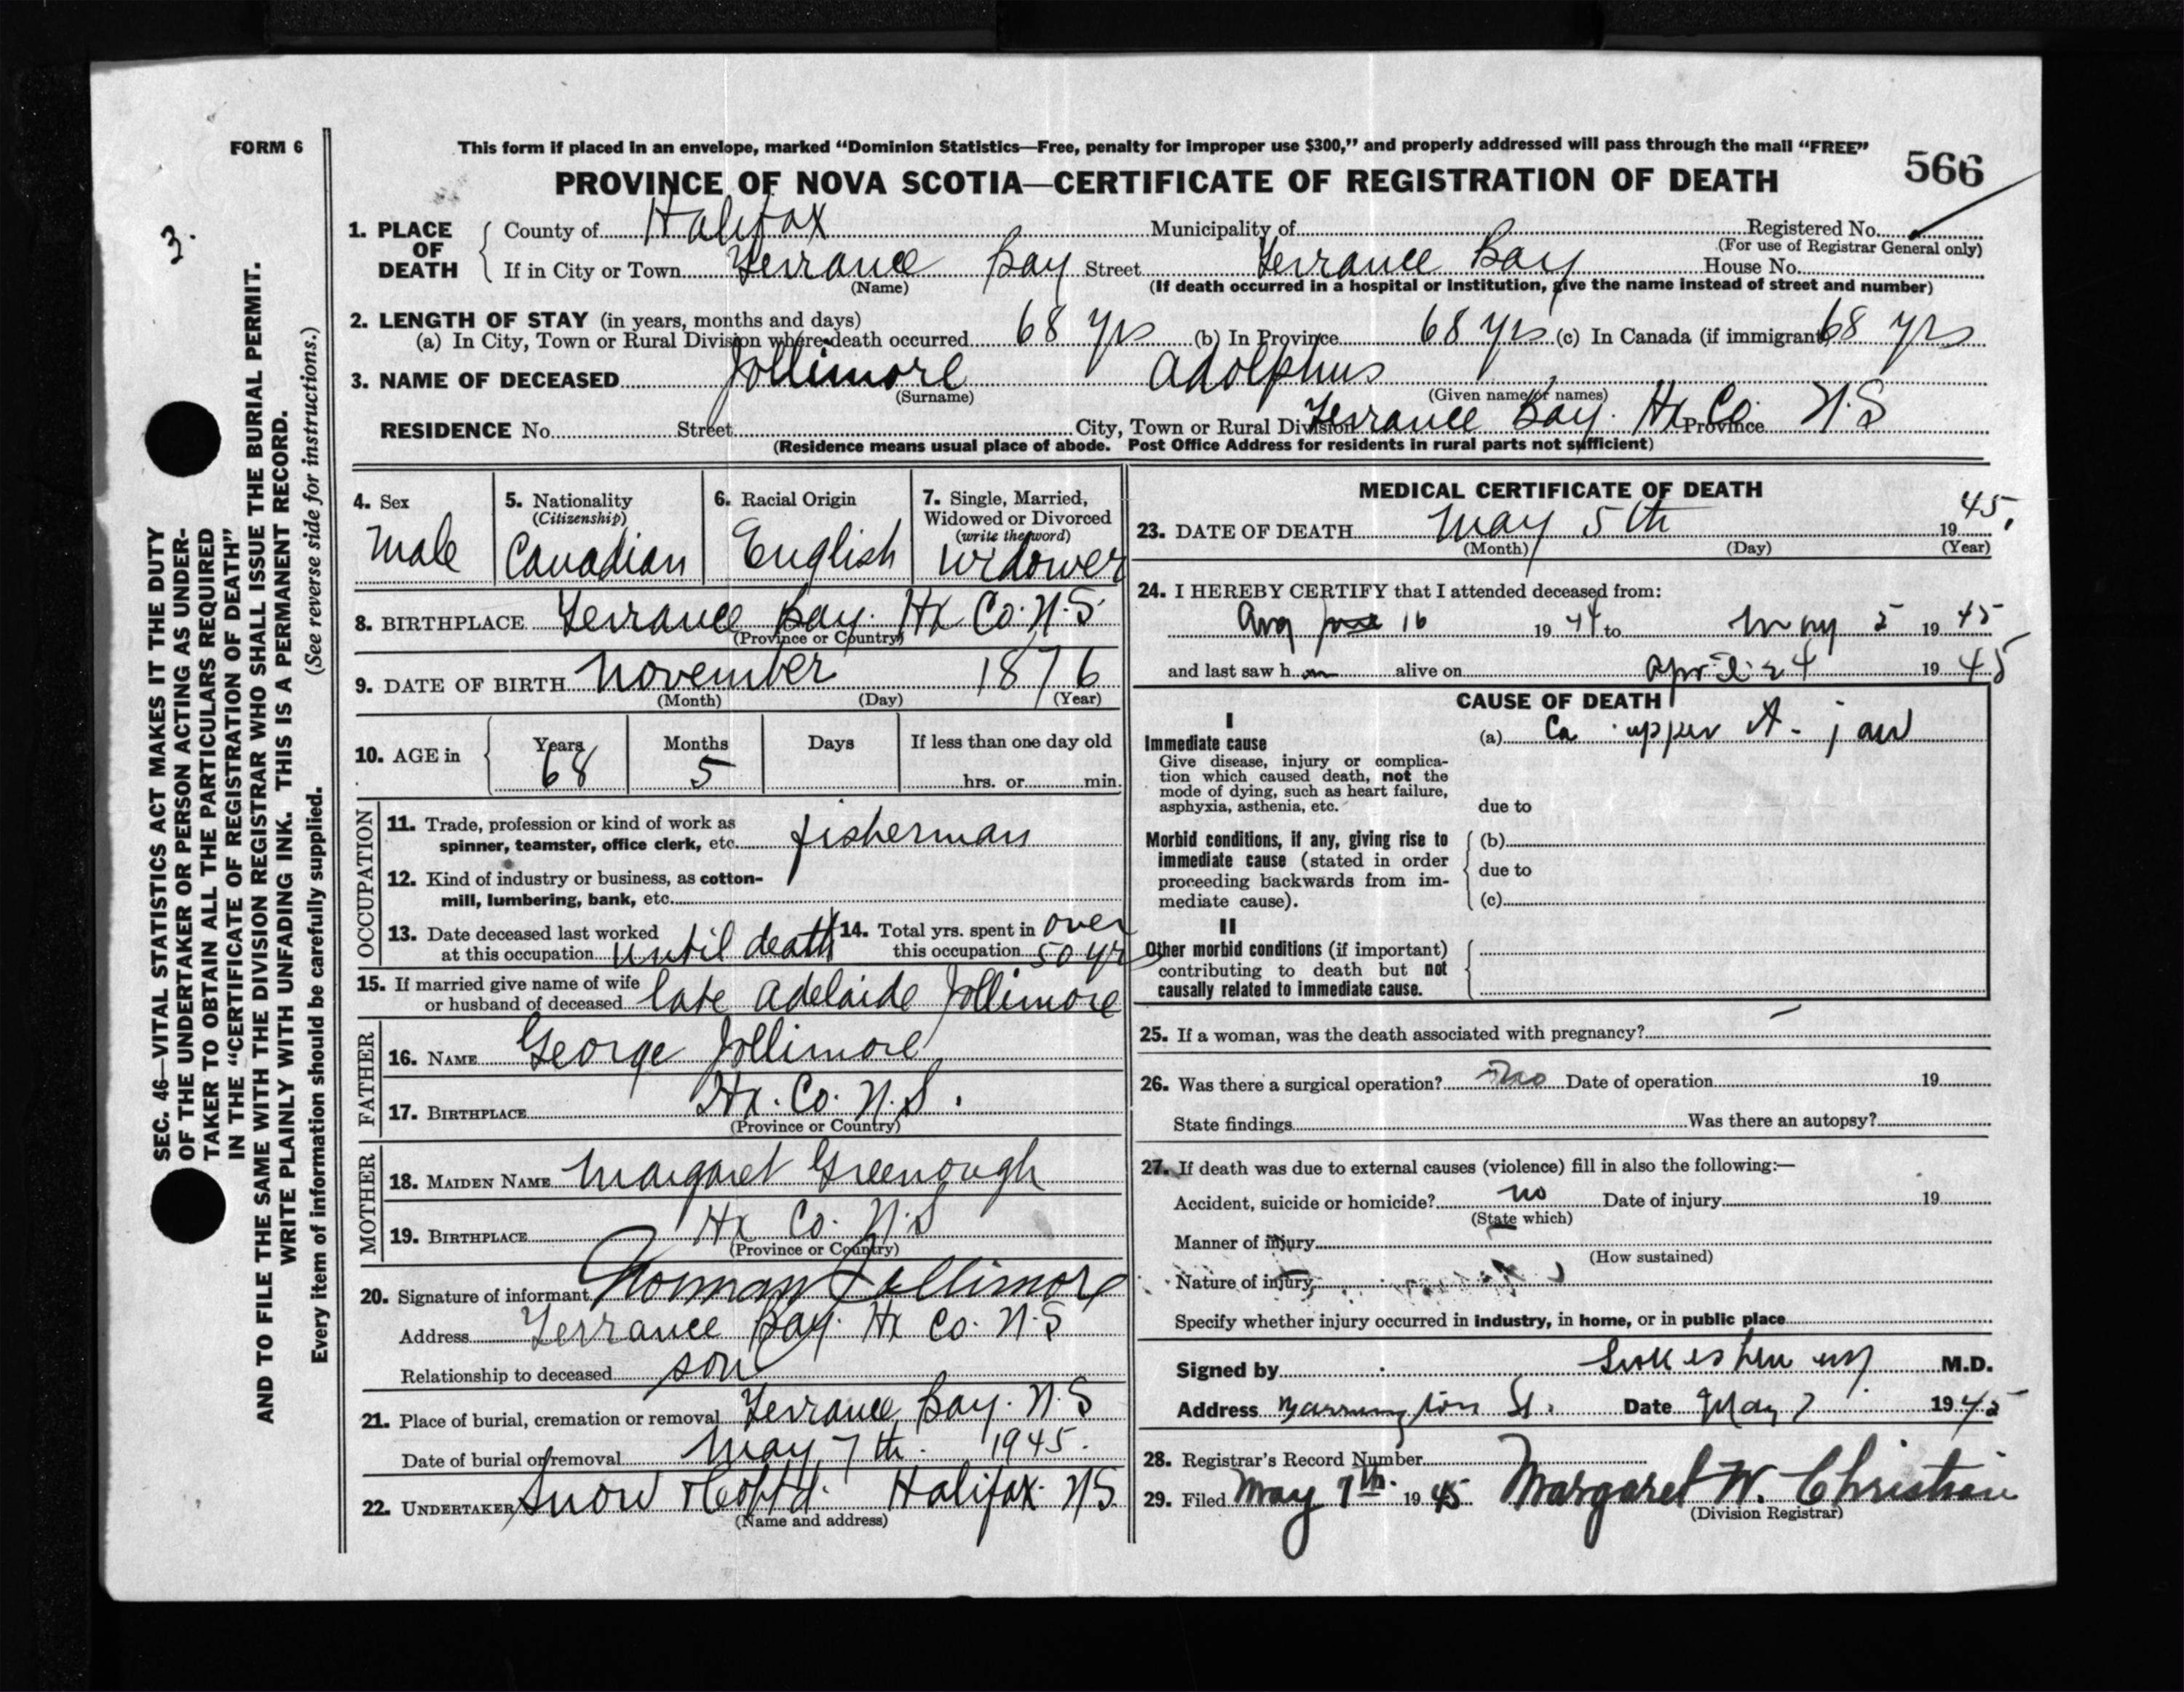 FORM 6
This form if placed in an envelope, marked “Dominion Statistics—Free, penalty for improper use $300,” and properly addressed will pass through the mail “FREE”
566
PROVINCE OF NOVA SCOTIA—CERTIFICATE OF REGISTRATION OF DEATH
3.
SEC. 46—VITAL STATISTICS ACT MAKES IT THE DUTY
OF THE UNDERTAKER OR PERSON ACTING AS UNDER-
TAKER TO OBTAIN ALL THE PARTICULARS REQUIRED
IN THE “CERTIFICATE OF REGISTRATION OF DEATH”
AND TO FILE THE SAME WITH THE DIVISION REGISTRAR WHO SHALL ISSUE THE BURIAL PERMIT.
WRITE PLAINLY WITH UNFADING INK. THIS IS A PERMANENT RECORD.
Every item of information should be carefully supplied. (See reverse side for instructions.)
1. PLACE OF DEATH
County of Halifax Municipality of Registered No.
(For use of Registrar General only)
If in City or Town Terrance Bay Street Terrance Bay House No.
(Name) (If death occurred in a hospital or institution, give the name instead of street and number)
2. LENGTH OF STAY (in years, months and days)
(a) In City, Town or Rural Division where death occurred 68 yrs (b) In Province 68 yrs (c) In Canada (if immigrant) 68 yrs
3. NAME OF DECEASED Jollimore Adolphus
(Surname) (Given name or names)
RESIDENCE No. Street City, Town or Rural Division Terrance Bay. Hx Co. Province N.S
(Residence means usual place of abode. Post Office Address for residents in rural parts not sufficient)
4. Sex
Male
5. Nationality
(Citizenship)
Canadian
6. Racial Origin
English
7. Single, Married,
Widowed or Divorced
(write the word)
Widower
8. BIRTHPLACE Terrance Bay. Hx Co. N.S.
(Province or Country)
9. DATE OF BIRTH November 1876
(Month) (Day) (Year)
10. AGE in
Years Months Days If less than one day old
68 5 hrs. or min.
OCCUPATION
11. Trade, profession or kind of work as
spinner, teamster, office clerk, etc. fisherman
12. Kind of industry or business, as cotton-
mill, lumbering, bank, etc.
13. Date deceased last worked
at this occupation until death
14. Total yrs. spent in over
this occupation 50 yrs
15. If married give name of wife
or husband of deceased late Adelaide Jollimore
FATHER
16. NAME George Jollimore
17. BIRTHPLACE Hx. Co. N.S.
(Province or Country)
MOTHER
18. MAIDEN NAME Margaret Greenough
19. BIRTHPLACE Hx Co. N.S
(Province or Country)
20. Signature of informant Norman Jollimore
Address Terrance Bay. Hx Co. N.S
Relationship to deceased son
21. Place of burial, cremation or removal Terrance Bay. N.S
Date of burial or removal May 7th. 1945.
22. UNDERTAKER Snow & Co Ltd. Halifax. NS.
(Name and address)
MEDICAL CERTIFICATE OF DEATH
23. DATE OF DEATH May 5th 1945.
(Month) (Day) (Year)
24. I HEREBY CERTIFY that I attended deceased from:
Aug 16 1944 to May 5 1945
and last saw h alive on April 24 1945
CAUSE OF DEATH
I
Immediate cause
Give disease, injury or complica-
tion which caused death, not the
mode of dying, such as heart failure,
asphyxia, asthenia, etc.
(a) Ca upper jaw
due to
Morbid conditions, if any, giving rise to
immediate cause (stated in order
proceeding backwards from im-
mediate cause).
(b)
due to
(c)
II
Other morbid conditions (if important)
contributing to death but not
causally related to immediate cause.
25. If a woman, was the death associated with pregnancy? —
26. Was there a surgical operation? no Date of operation 19
State findings Was there an autopsy?
27. If death was due to external causes (violence) fill in also the following:—
Accident, suicide or homicide? no Date of injury 19
(State which)
Manner of injury
(How sustained)
Nature of injury
Specify whether injury occurred in industry, in home, or in public place
Signed by M.D.
Address Barrington St. Date May 7 1945
28. Registrar's Record Number
29. Filed May 7th. 1945 Margaret W. Christian
(Division Registrar)